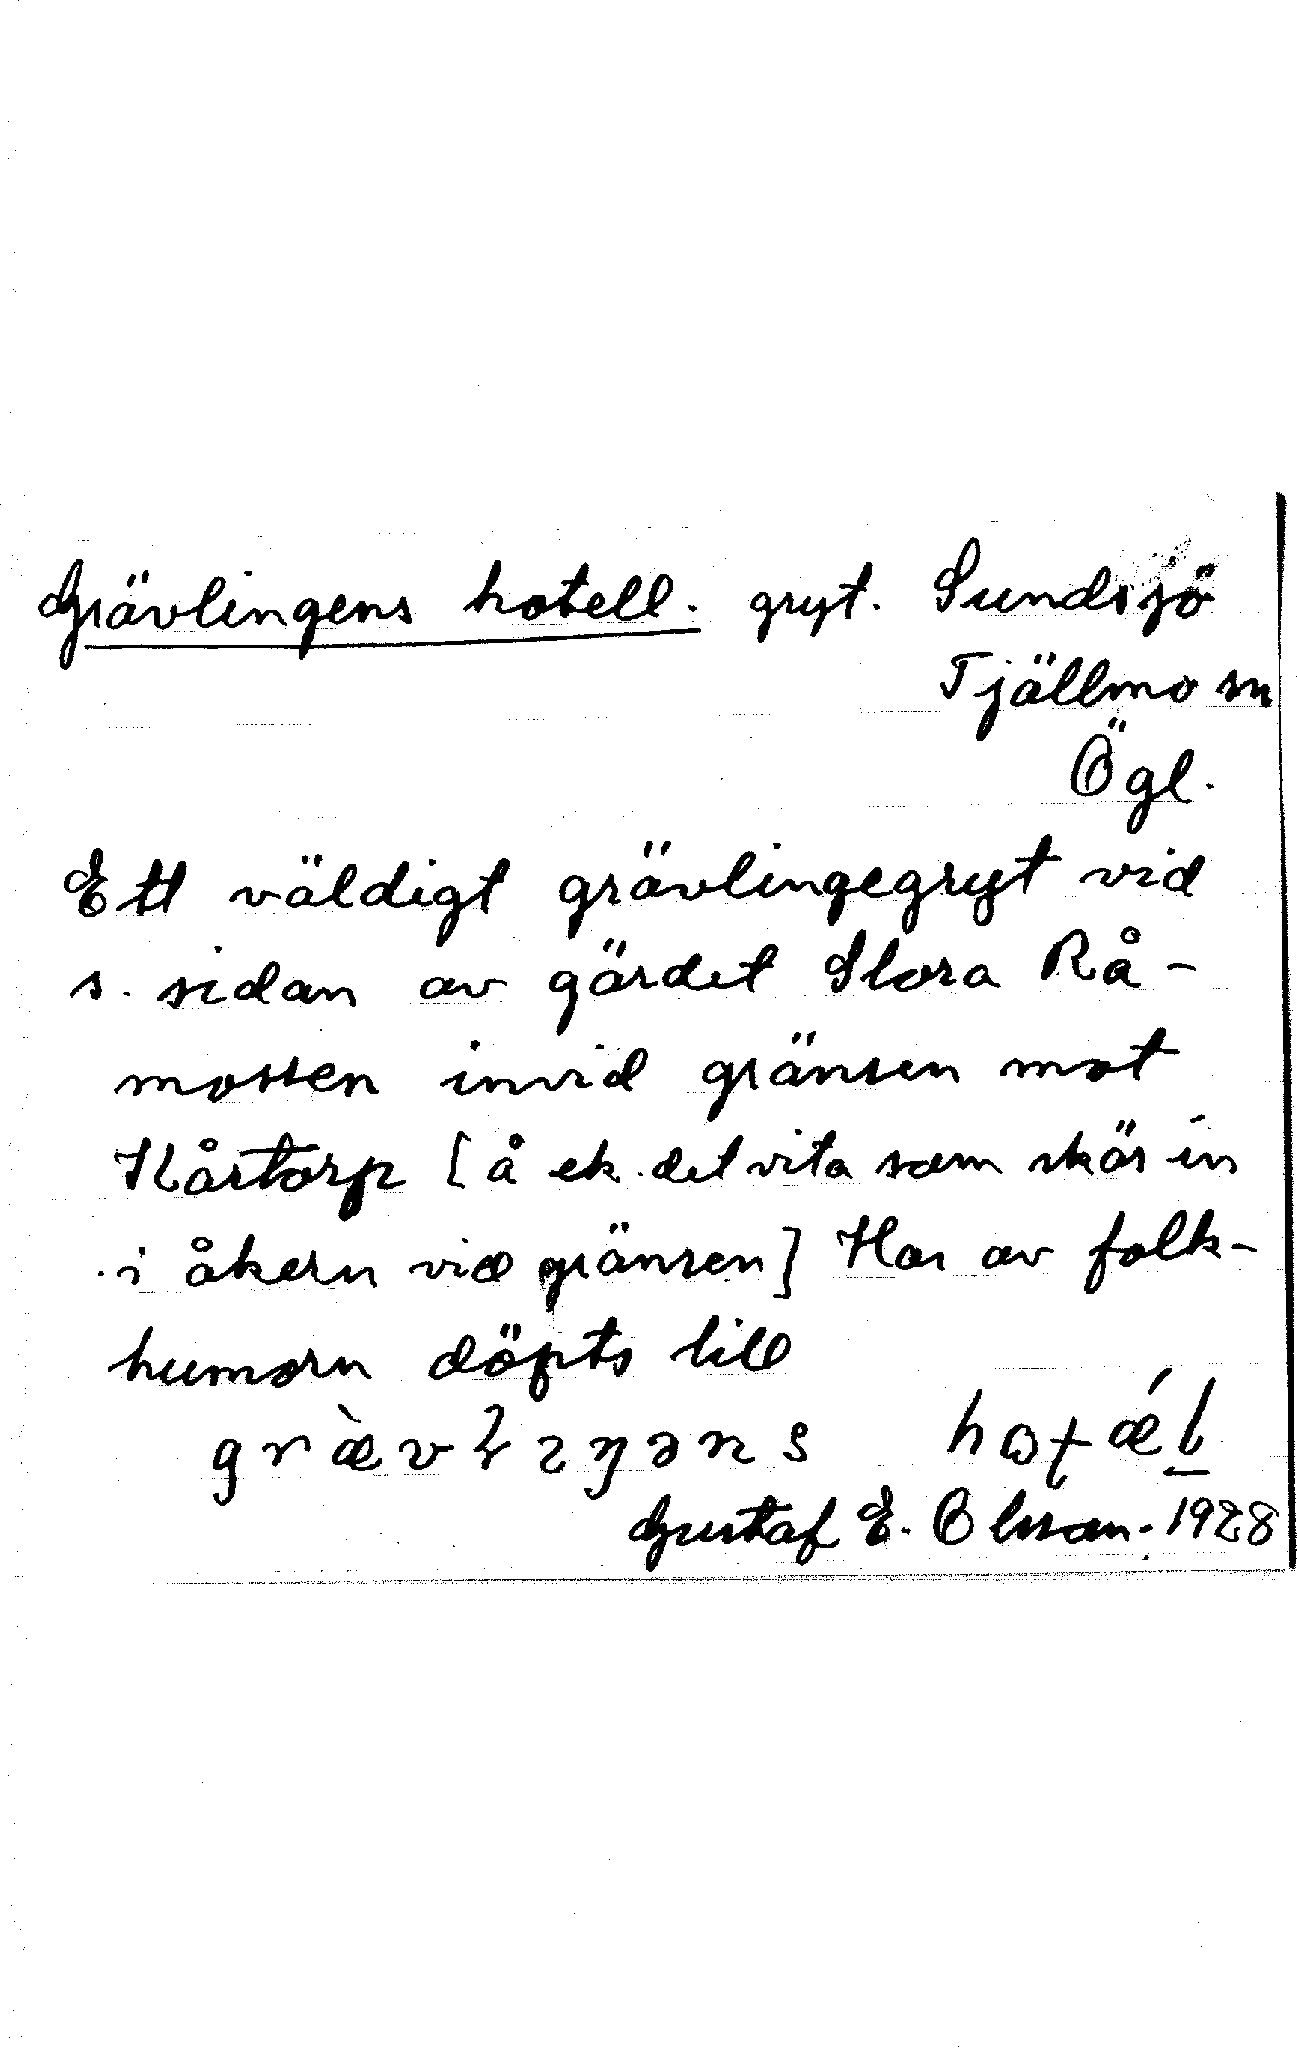 Grävlingens hotell. gryt. Sundsjö
Tjällmo sn
Ögl.
Ett väldigt grävlingegryt vid
s. sidan av gärdet Stora Rå-
mossen invid gränsen mot
Kårtorp [å ek. det vita som skär in
i åkern vid gränsen] Har av folk-
humorn döpts till
Gustaf E. Olsson. 1928